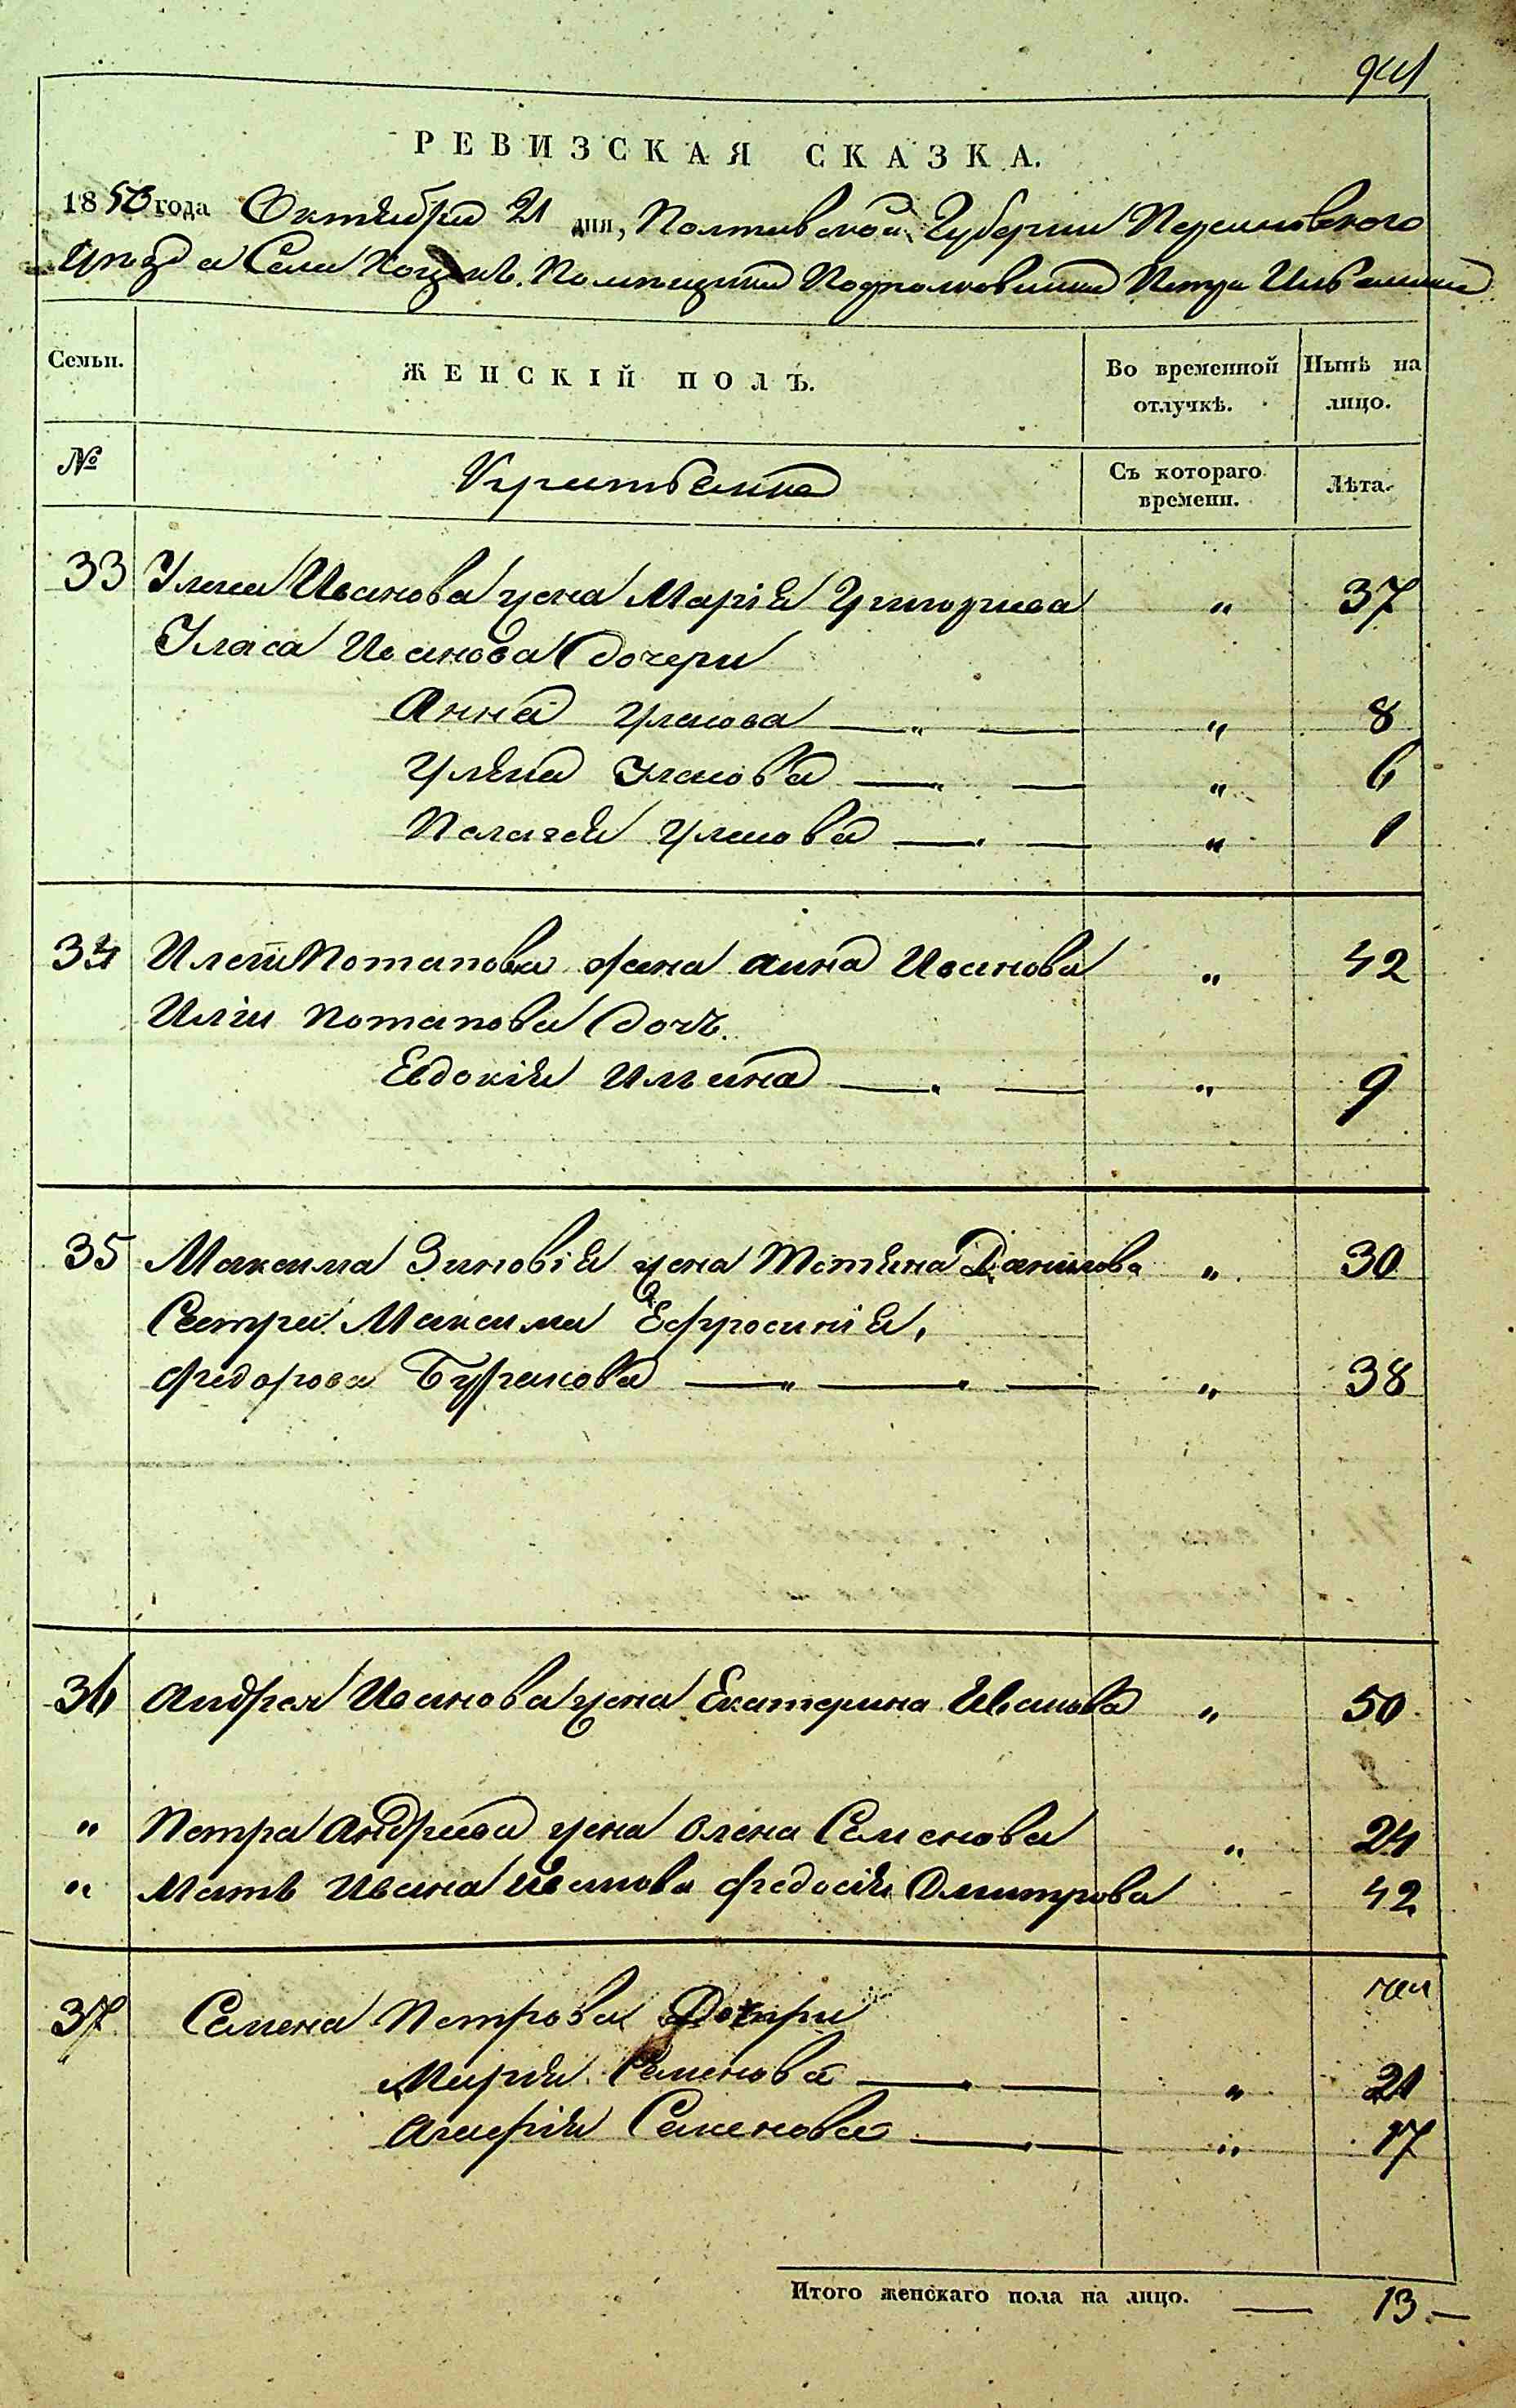 941
РЕВИЗСКАЯ СКАЗКА.
1850 года Октября 21 дня, Полтавской Губернии
Уезда Села Помещика Подполковника Петра
Семьи. ЖЕНСКІЙ ПОЛЪ. Во временной отлучкѣ. Нынѣ на лицо.
№ Съ котораго времени. Лѣта.
33 Уласа Иванова жена Марія Григориева " 37
Уласа Иванова дочери
Анна Уласова " 8
Уляна Уласова " 6
Палагея Уласова " 1
34 Потапова жена анна Иванова " 42
Иліи Потапова дочь.
Евдокія Ильина " 9
35 Максима Зиновія жена Татяна Данилова " 30
Сестра Максима Ефросинія,
Федорова " 38
36 Андрея Иванова жена Екатерина Иванова " 50
" Петра Андреева жена Олена Семенова " 24
" Мать Ивана Иванова Федосія Дмитрова 42
37 Семена Петрова Дочери
Марія Семенова " 21
Агафія Семенова " 17
Итого женскаго пола на лицо. 13.